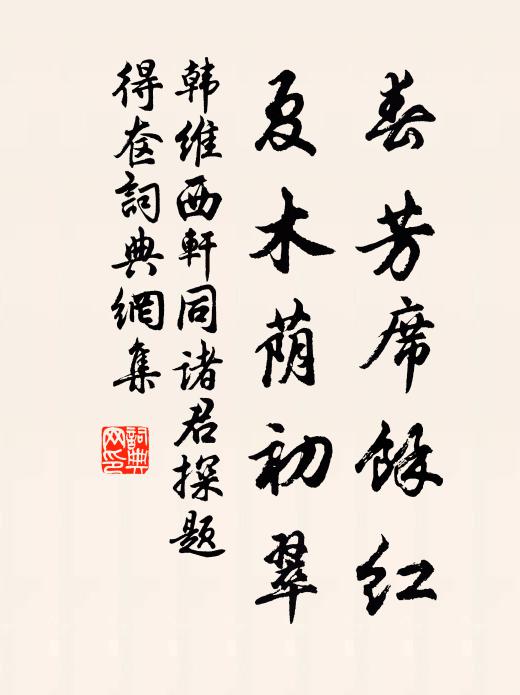 春芳席餘红
夏木荫初翠
韩維西軒同诸君探题
得奁詞典網集
詞典网印